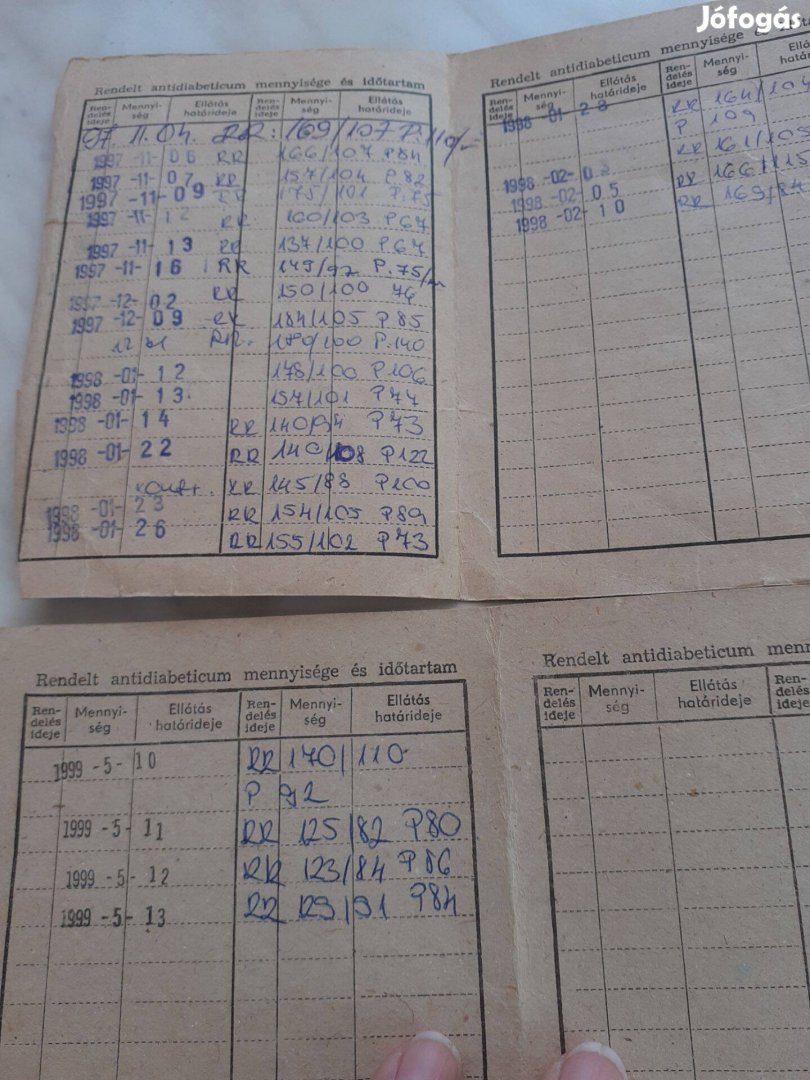 Jófogás
Rendelt antidiabeticum mennyisége és időtartam
Ren- delés ideje Mennyi- ség Ellátás határideje Ren- delés ideje Mennyi- ség Ellátás határideje
97. 11.04. RR: 169/107 P. 110/-
1997 -11- 06 RR 166/107 P84
1997 -11- 07 RR 157/104 P82
1997 -11- 09 RR 175/101 P.75
1997 -11- 12 RR 160/103 P67
1997 -11- 13 RR 137/100 P67
1997 -11- 16 RR 149/92 P.75/
1997 -12- 02 RR 150/100 76
1997 -12- 09 RR 184/105 P85
12 RR. /100 P.140
1998 -01- 12 178/100 P106
1998 -01- 13 157/101 P77
1998 -01- 14 RR 140/94 P73
1998 -01- 22 RR 140/108 P122
RR 145/88 P100
1998 -01- 23 RR 154/105 P89
1998 -01- 26 RR 155/102 P73
Rendelt antidiabeticum mennyisége és
Ren- delés ideje Mennyi- ség Ellátás határideje Ren- delés ideje Mennyi- ség
1998 -01- 28 RR 164/104
P 109
RR
1998 -02- RR 166/115
1998 -02- 05 RR 169/84
1998 -02- 10
Rendelt antidiabeticum mennyisége és időtartam
Ren- delés ideje Mennyi- ség Ellátás határideje Ren- delés ideje Mennyi- ség Ellátás határideje
1999 -5- 10 RR 170/110
P 92
1999 -5- 11 RR 125/82 P80
1999 -5- 12 RR 123/84 P86
1999 -5- 13 RR 129/91 P84
Rendelt antidiabeticum
Ren- delés ideje Mennyi- ség Ellátás határideje Ren- delés ideje